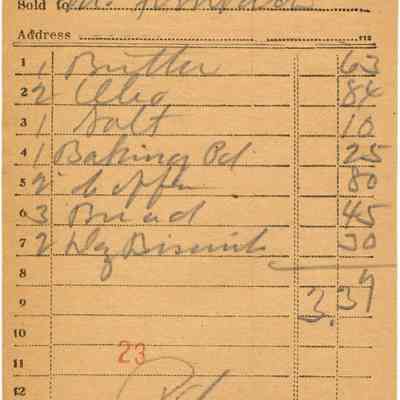 Sold to
Address
1 1 Butter 63
2 2 Oleo 84
3 1 Salt 10
4 1 Baking Pd 25
5 2 Coffee 80
6 3 Bread 45
7 2 Dz Biscuits 30
8
9 3.37
10
23
11
12 Pd